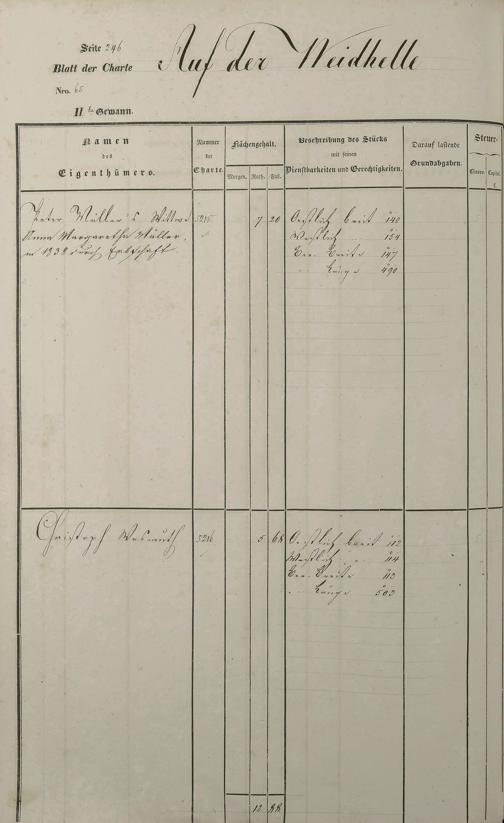 Seite 246
Blatt der Charte
Nro. 65
II te Gewann.
Auf der Weidhelle
Namen des Eigenthümers.
Nummer der Charte.
Flächengehalt.
Morgen. Ruth. Fuß.
Beschreibung des Stücks
mit seinen
Dienstbarkeiten und Gerechtigkeiten.
Darauf lastende
Grundabgaben.
Steuer-
Classe. Capital.
Peter Müller's Wittwe 5215 7 20 Oestlich breit 140
Anna Margaretha Müller, Westlich 154
1838 durch Erbschaft Ber. Breite 147
Länge 490
Christoph Wasmuth 5216 5 68 Oestlich breit 112
Westlich 114
Ber. Breite 113
Länge 503
12 88